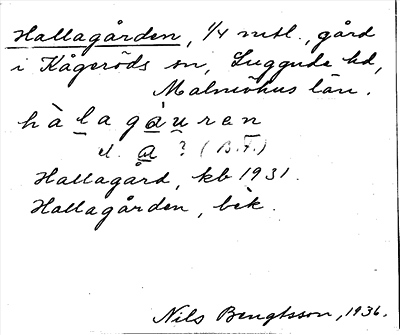 Hallagården, 1/4 mtl., gård
i Kågeröds sn, Luggude hd,
Malmöhus län.
hàlagàuren
el. å ? (B.F.)
Hallagård, kb 1931.
Hallagården, bek.
Nils Bengtsson, 1936.